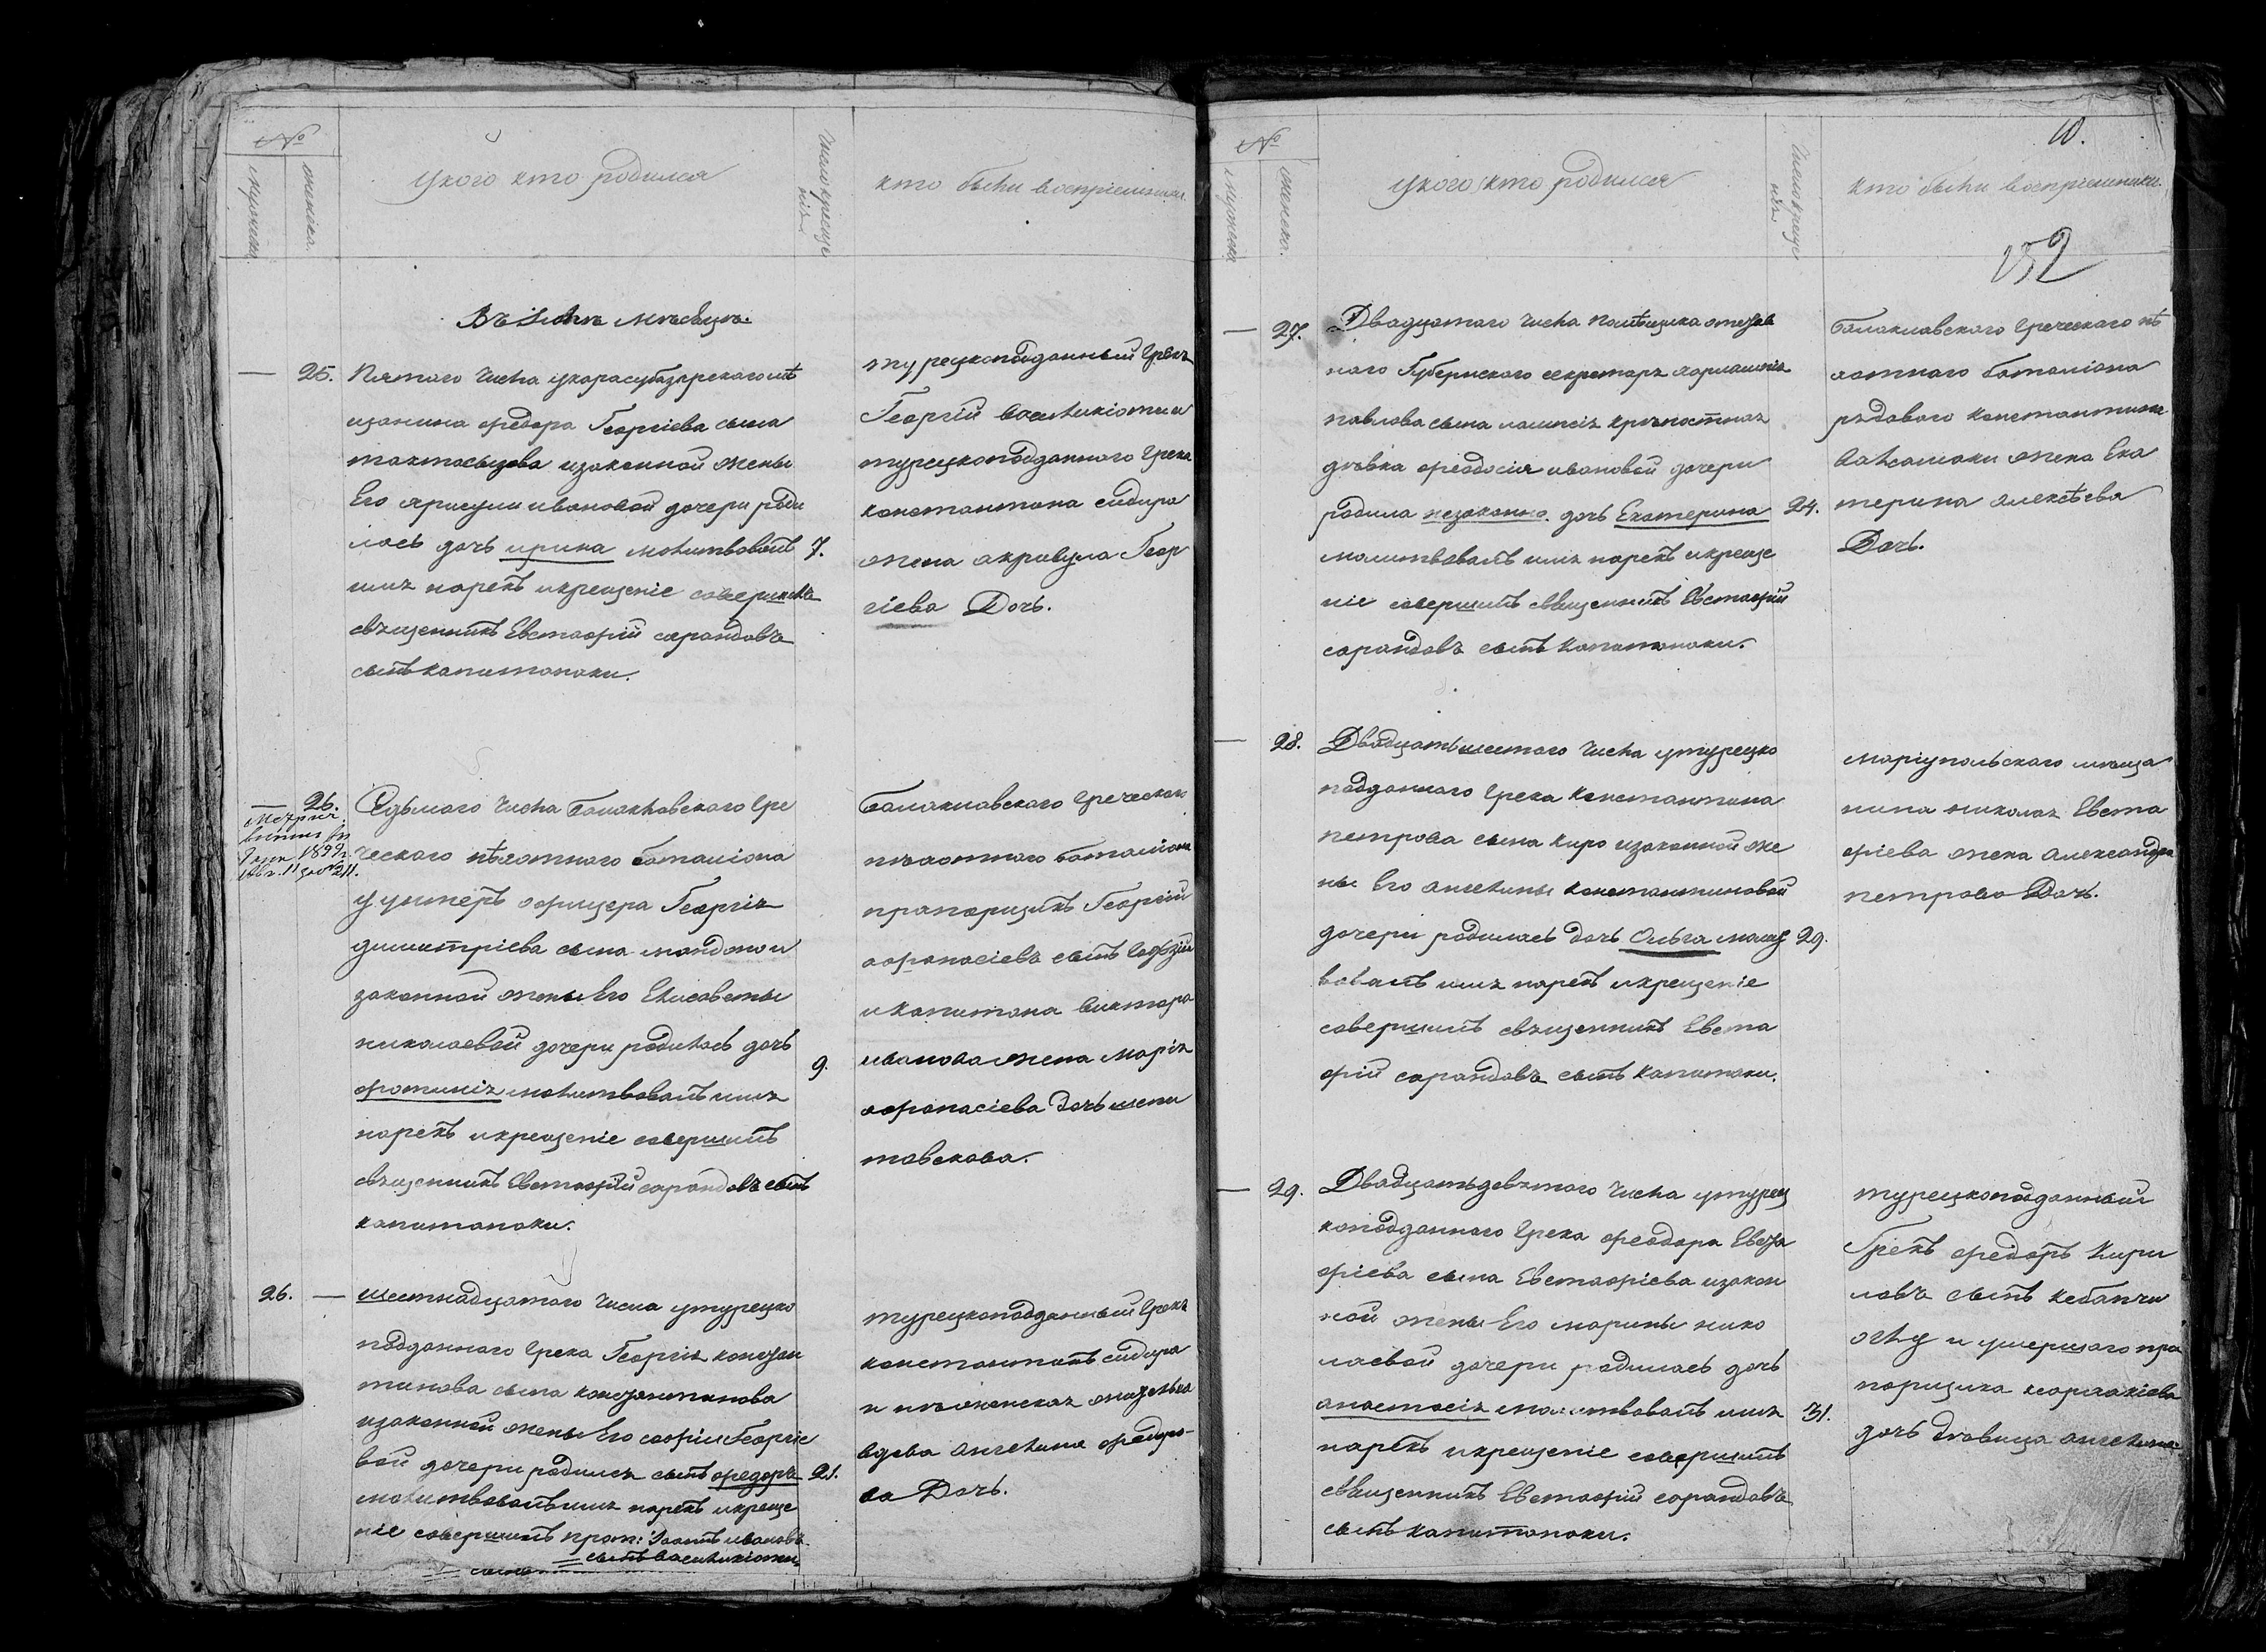 №
мужеска.
женска.
У кого кто родился
Число крещенія
кто были восприемники
Въ Іюлъ мѣсяцѣ.
— 25. Пятаго числа у карасубазарскаго мѣ
щанина федора Георгіева сына
изаконной жены
Его ивановой дочери роди
лась дочь ирина молитвовалъ 7.
имя нарекъ икрещеніе совершилъ
священникъ Евстафій сарандовъ
сынъ капитанаки.
турецкоподданный Грекъ
Георгій василикіоти и
турецкоподданного Грека
константина сидира
жена Геор
гіева Дочь.
— 26. Седьмого числа балаклавского Гре
1899
211.
ческого пѣхотного баталіона
у унтеръ офицера Георгія
димитріева сына мандажи
законной жены Его Елисаветы
николаевой дочери родилась дочь
фотинія молитвовалъ имя 9.
нарекъ икрещеніе совершилъ
священникъ Евстафій сарандовъ сынъ
капитанаки.
балаклавского Греческого
пѣхотного баталіона
прапорщикъ Георгій
афанасіевъ сынъ
и капитана виктора
иванова жена марія
афанасіева дочь
26. — шестнадцатого числа утурецко
подданного Грека Георгія констан
тинова сына константинова
изаконной жены Его софіи Георгіе
вой дочери родился сынъ федоръ 21.
молитвовалъ имя нарекъ икреще
ніе совершилъ прот: Іоаннъ ивановъ
сынъ василикіоти.
турецкоподданный Грекъ
константинъ сидира
вдова ангелина федоро-
ва Дочь.
10.
№
мужеска
женска.
у кого кто родился
Число крещенія
кто были восприемники.
152
— 27. Двадцатого числа помѣщика отстав
ного Губернского секретаря
павлова сына крѣпостная
дѣвка феодосія ивановой дочери
родила незаконно. дочь Екатерина 24.
молитвовалъ имя нарекъ икреще
ніе совершилъ священникъ Евстафій
сарандовъ сынъ капитанаки.
балаклавского Греческого пѣ
хотного баталіона
рядового константина
жена Ека
терина алексѣева
Дочь.
— 28. Двадцатьшестого числа утурецко
подданного Грека константина
петрова сына киро изаконной же
ны Его ангелины константиновой
дочери родилась дочь Ольга молит 29.
вовалъ имя нарекъ икрещеніе
совершилъ священникъ Евста
фій сарандовъ сынъ капитаки.
маріупольского мѣща
нина николая Евста
фіева жена александра
петрова Дочь.
— 29. Двадцатьдевятого числа утурец
коподданного Грека феодора Евста
фіева сына Евстафіева изакон
ной жены Его марины нико
лаевой дочери родилась дочь
анастасія молитвовалъ имя 31.
нарекъ икрещеніе совершилъ
священникъ Евстафій сарандовъ
сынъ капитанаки.
турецкоподданный
Грекъ федоръ Кири
ловъ сынъ кебапчи
оглу и умершаго пра
порщика
дочь дѣвица ангелина.